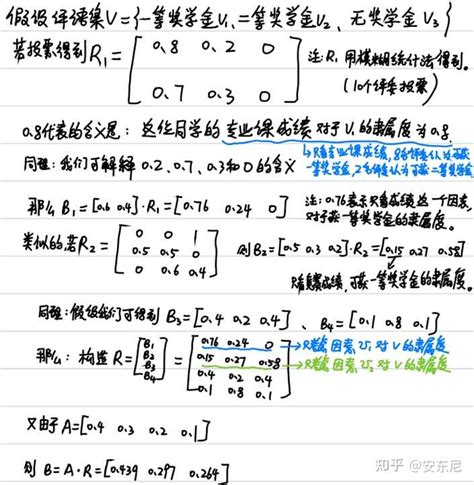 假设评语集V={一等奖学金V₁,二等奖学金V₂,无奖学金V₃}
若投票得到R₁=[0.8 0.2 0
0.7 0.3 0]
注:R₁用模糊统计法得到。
(10个评委投票)
0.8代表的含义是:这位同学的专业课成绩对于V₁的隶属度为0.8
↳只看专业课成绩,8名评委认为可获
一等奖学金,2名评委认为可获二等奖学金
同理:我们可解释0.2、0.7、0.3和0的含义
那么B₁=[0.6 0.4]·R₁=[0.76 0.24 0]
注:0.76表示只看成绩这一个因素,
对于获一等奖学金的隶属度。
类似的若R₂=[0 0 1
0.5 0.5 0
0 0.6 0.4]
则B₂=[0.5 0.3 0.2]·R₂=[0.15 0.27 0.58]
只看竞赛成绩,可获一等奖学金的隶属度。
同理:假设我们可得到B₃=[0.4 0.2 0.4]、B₄=[0.1 0.8 0.1]
那么:构造R=[B₁
B₂
B₃
B₄]
=[0.76 0.24 0
0.15 0.27 0.58
0.4 0.2 0.4
0.1 0.8 0.1]
→只考虑因素U₁对V的隶属度
→只考虑因素U₂对V的隶属度
又由于A=[0.4 0.3 0.2 0.1]
则B=A·R=[0.439 0.297 0.264]
知乎 @安东尼